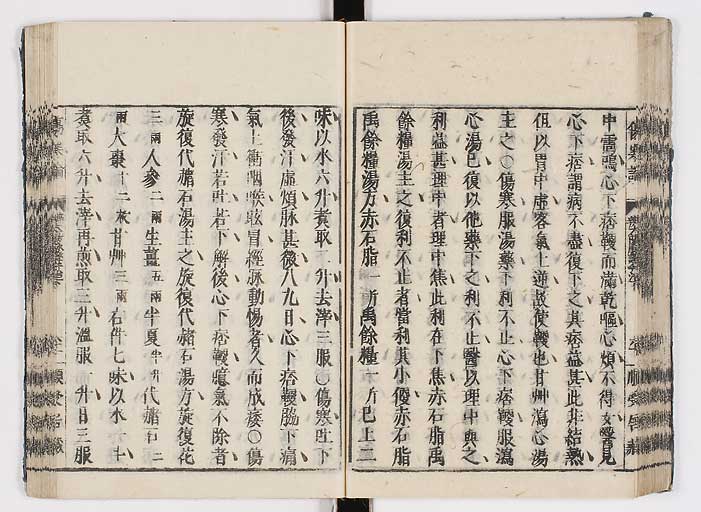 中雷鳴心下痞鞕而滿乾嘔心煩不得安醫見
心下痞謂病不盡復下之其痞益甚此非結熱
但以胃中虛客氣上逆故使鞕也甘艸瀉心湯
主之○傷寒服湯藥下利不止心下痞鞕服瀉
心湯已復以他藥下之利不止醫以理中與之
利益甚理中者理中焦此利在下焦赤石脂禹
餘糧湯主之復利不止者當利其小便赤石脂
禹餘糧湯方赤石脂一斤禹餘糧一斤已上二
味以水六升煮取二升去滓三服○傷寒吐下
後發汗虛煩脉甚微八九日心下痞鞕脇下痛
氣上衝咽喉眩冒經脉動惕者久而成痿○傷
寒發汗若吐若下解後心下痞鞕噫氣不除者
旋復代赭石湯主之旋復代赭石湯方旋復花
三兩人參二兩生薑五兩半夏半升代赭石二
兩大棗十二枚甘艸三兩右件七味以水一斗
煮取六升去滓再煎取三升溫服一升日三服